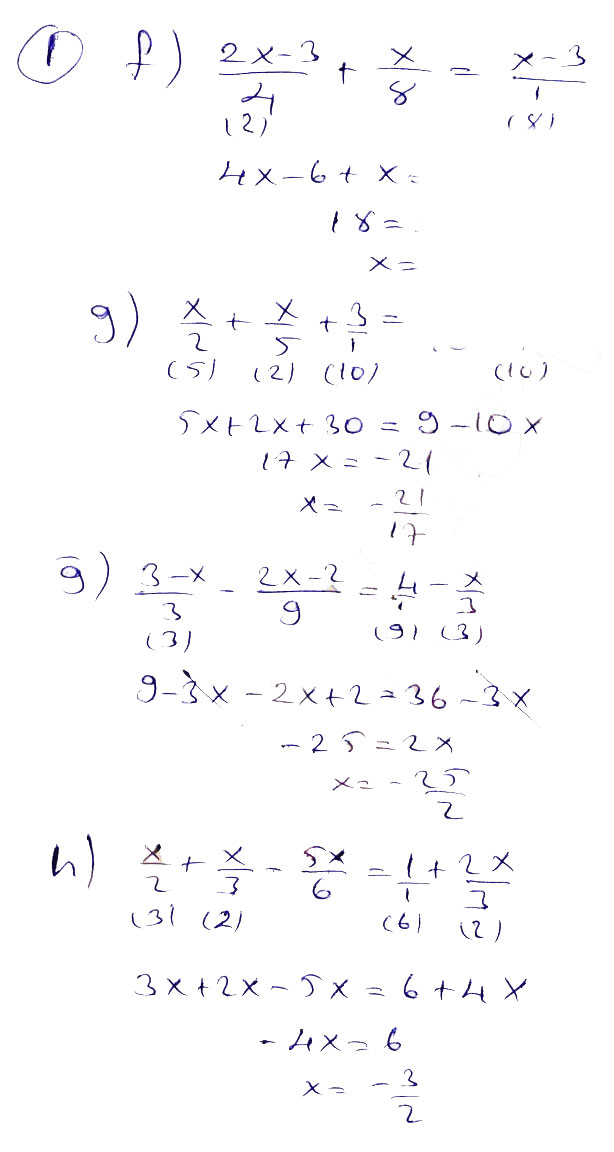 ① f) (2x-3)/4 + x/8 = (x-3)/1
(2) (8)
4x-6+x=
18=
x=
g) x/2 + x/5 + 3/1 =
(5) (2) (10) (10)
5x+2x+30=9-10x
17x=-21
x= -21/17
ğ) (3-x)/3 - (2x-2)/9 = 4/1 - x/3
(3) (9) (3)
9-3x-2x+2=36-3x
-25=2x
x=-25/2
h) x/2 + x/3 - 5x/6 = 1/1 + 2x/3
(3) (2) (6) (2)
3x+2x-5x=6+4x
-4x=6
x= -3/2